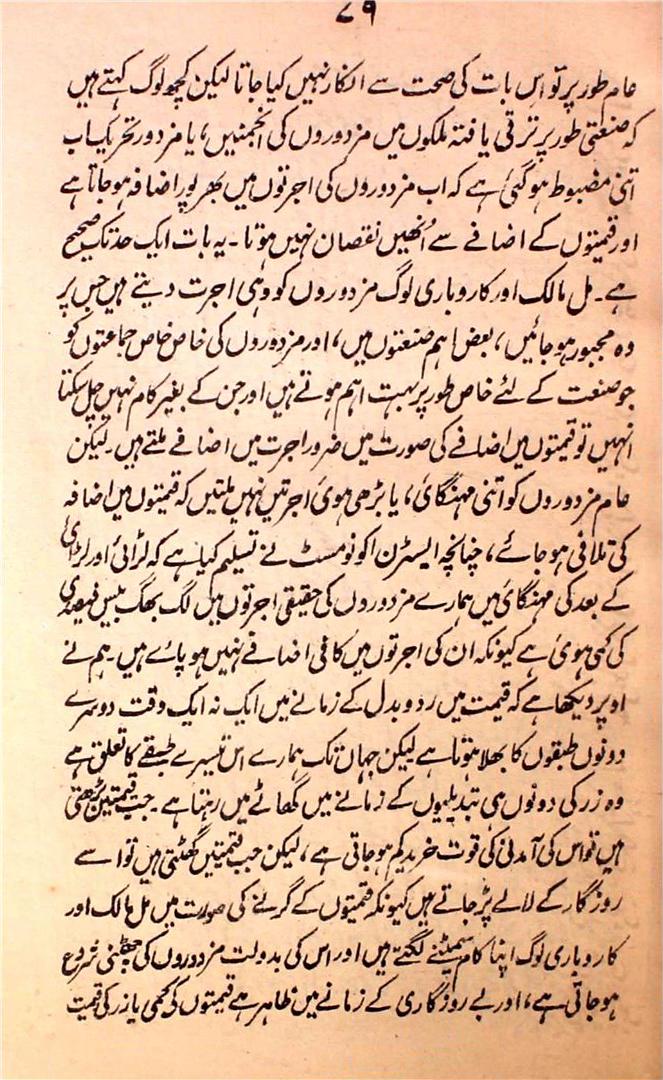 ۷۹
عام طور پر تو اس بات کی صحت سے انکار نہیں کیا جاتا لیکن کچھ لوگ کہتے ہیں
کہ صنعتی طور پر ترقی یافتہ ملکوں میں مزدوروں کی انجمنیں، یا مزدور تحریک اب
اتنی مضبوط ہو گئی ہے کہ اب مزدوروں کی اجرتوں میں بھرپور اضافہ ہو جاتا ہے
اور قیمتوں کے اضافے سے اُنھیں نقصان نہیں ہوتا۔ یہ بات ایک حد تک صحیح
ہے۔ مل مالک اور کاروباری لوگ مزدوروں کو وہی اجرت دیتے ہیں جس پر
وہ مجبور ہو جائیں، بعض اہم صنعتوں میں، اور مزدوروں کی خاص خاص جماعتوں کو
جو صنعت کے لئے خاص طور پر بہت اہم ہوتے ہیں اور جن کے بغیر کام نہیں چل سکتا
انہیں تو قیمتوں میں اضافے کی صورت میں ضرور اجرت میں اضافے ملتے ہیں۔ لیکن
عام مزدوروں کو اتنی مہنگائی، یا بڑھی ہوئی اجرتیں نہیں ملتیں کہ قیمتوں میں اضافہ
کی تلافی ہو جائے، چنانچہ ایسٹرن اکونومسٹ نے تسلیم کیا ہے کہ لڑائی اور لڑائی
کے بعد کی مہنگائی میں ہمارے مزدوروں کی حقیقی اجرتوں میں لگ بھگ بیس فیصدی
کی کمی ہوئی ہے کیونکہ ان کی اجرتوں میں کافی اضافے نہیں ہو پائے ہیں۔ ہم نے
اوپر دیکھا ہے کہ قیمت میں ردوبدل کے زمانے میں ایک نہ ایک وقت دوسرے
دونوں طبقوں کا بھلا ہوتا ہے لیکن جہاں تک ہمارے اس تیسرے طبقے کا تعلق ہے
وہ زر کی دونوں ہی تبدیلیوں کے زمانے میں گھاٹے میں رہتا ہے۔ جب قیمتیں بڑھتی
ہیں تو اس کی آمدنی کی قوت خرید کم ہو جاتی ہے، لیکن جب قیمتیں گھٹتی ہیں تو اسے
روزگار کے لالے پڑ جاتے ہیں کیونکہ قیمتوں کے گرنے کی صورت میں مل مالک اور
کاروباری لوگ اپنا کام سمیٹنے لگتے ہیں اور اس کی بدولت مزدوروں کی چھٹنی شروع
ہو جاتی ہے، اور بے روزگاری کے زمانے میں ظاہر ہے قیمتوں کی کمی یا زر کی قیمت